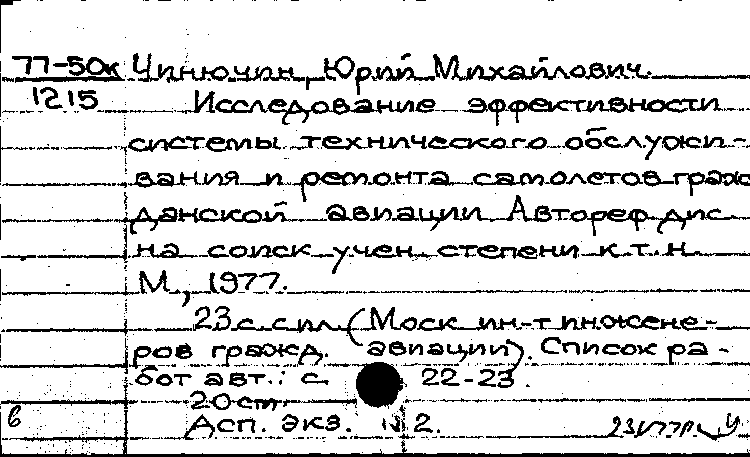 77-50к Чинючин, Юрий Михайлович.
1215 Исследование эффективности
системы технического обслужи-
вания и ремонта самолетов граж
данской авиации Автореф дис
на соиск учен. степени к.т.н.
М., 1977.
23 с. с ил. (Моск ин-т инжене-
ров гражд. авиации). Список ра-
бот авт.: с. 22-23.
20 ст.
в Асп. экз. N 2.